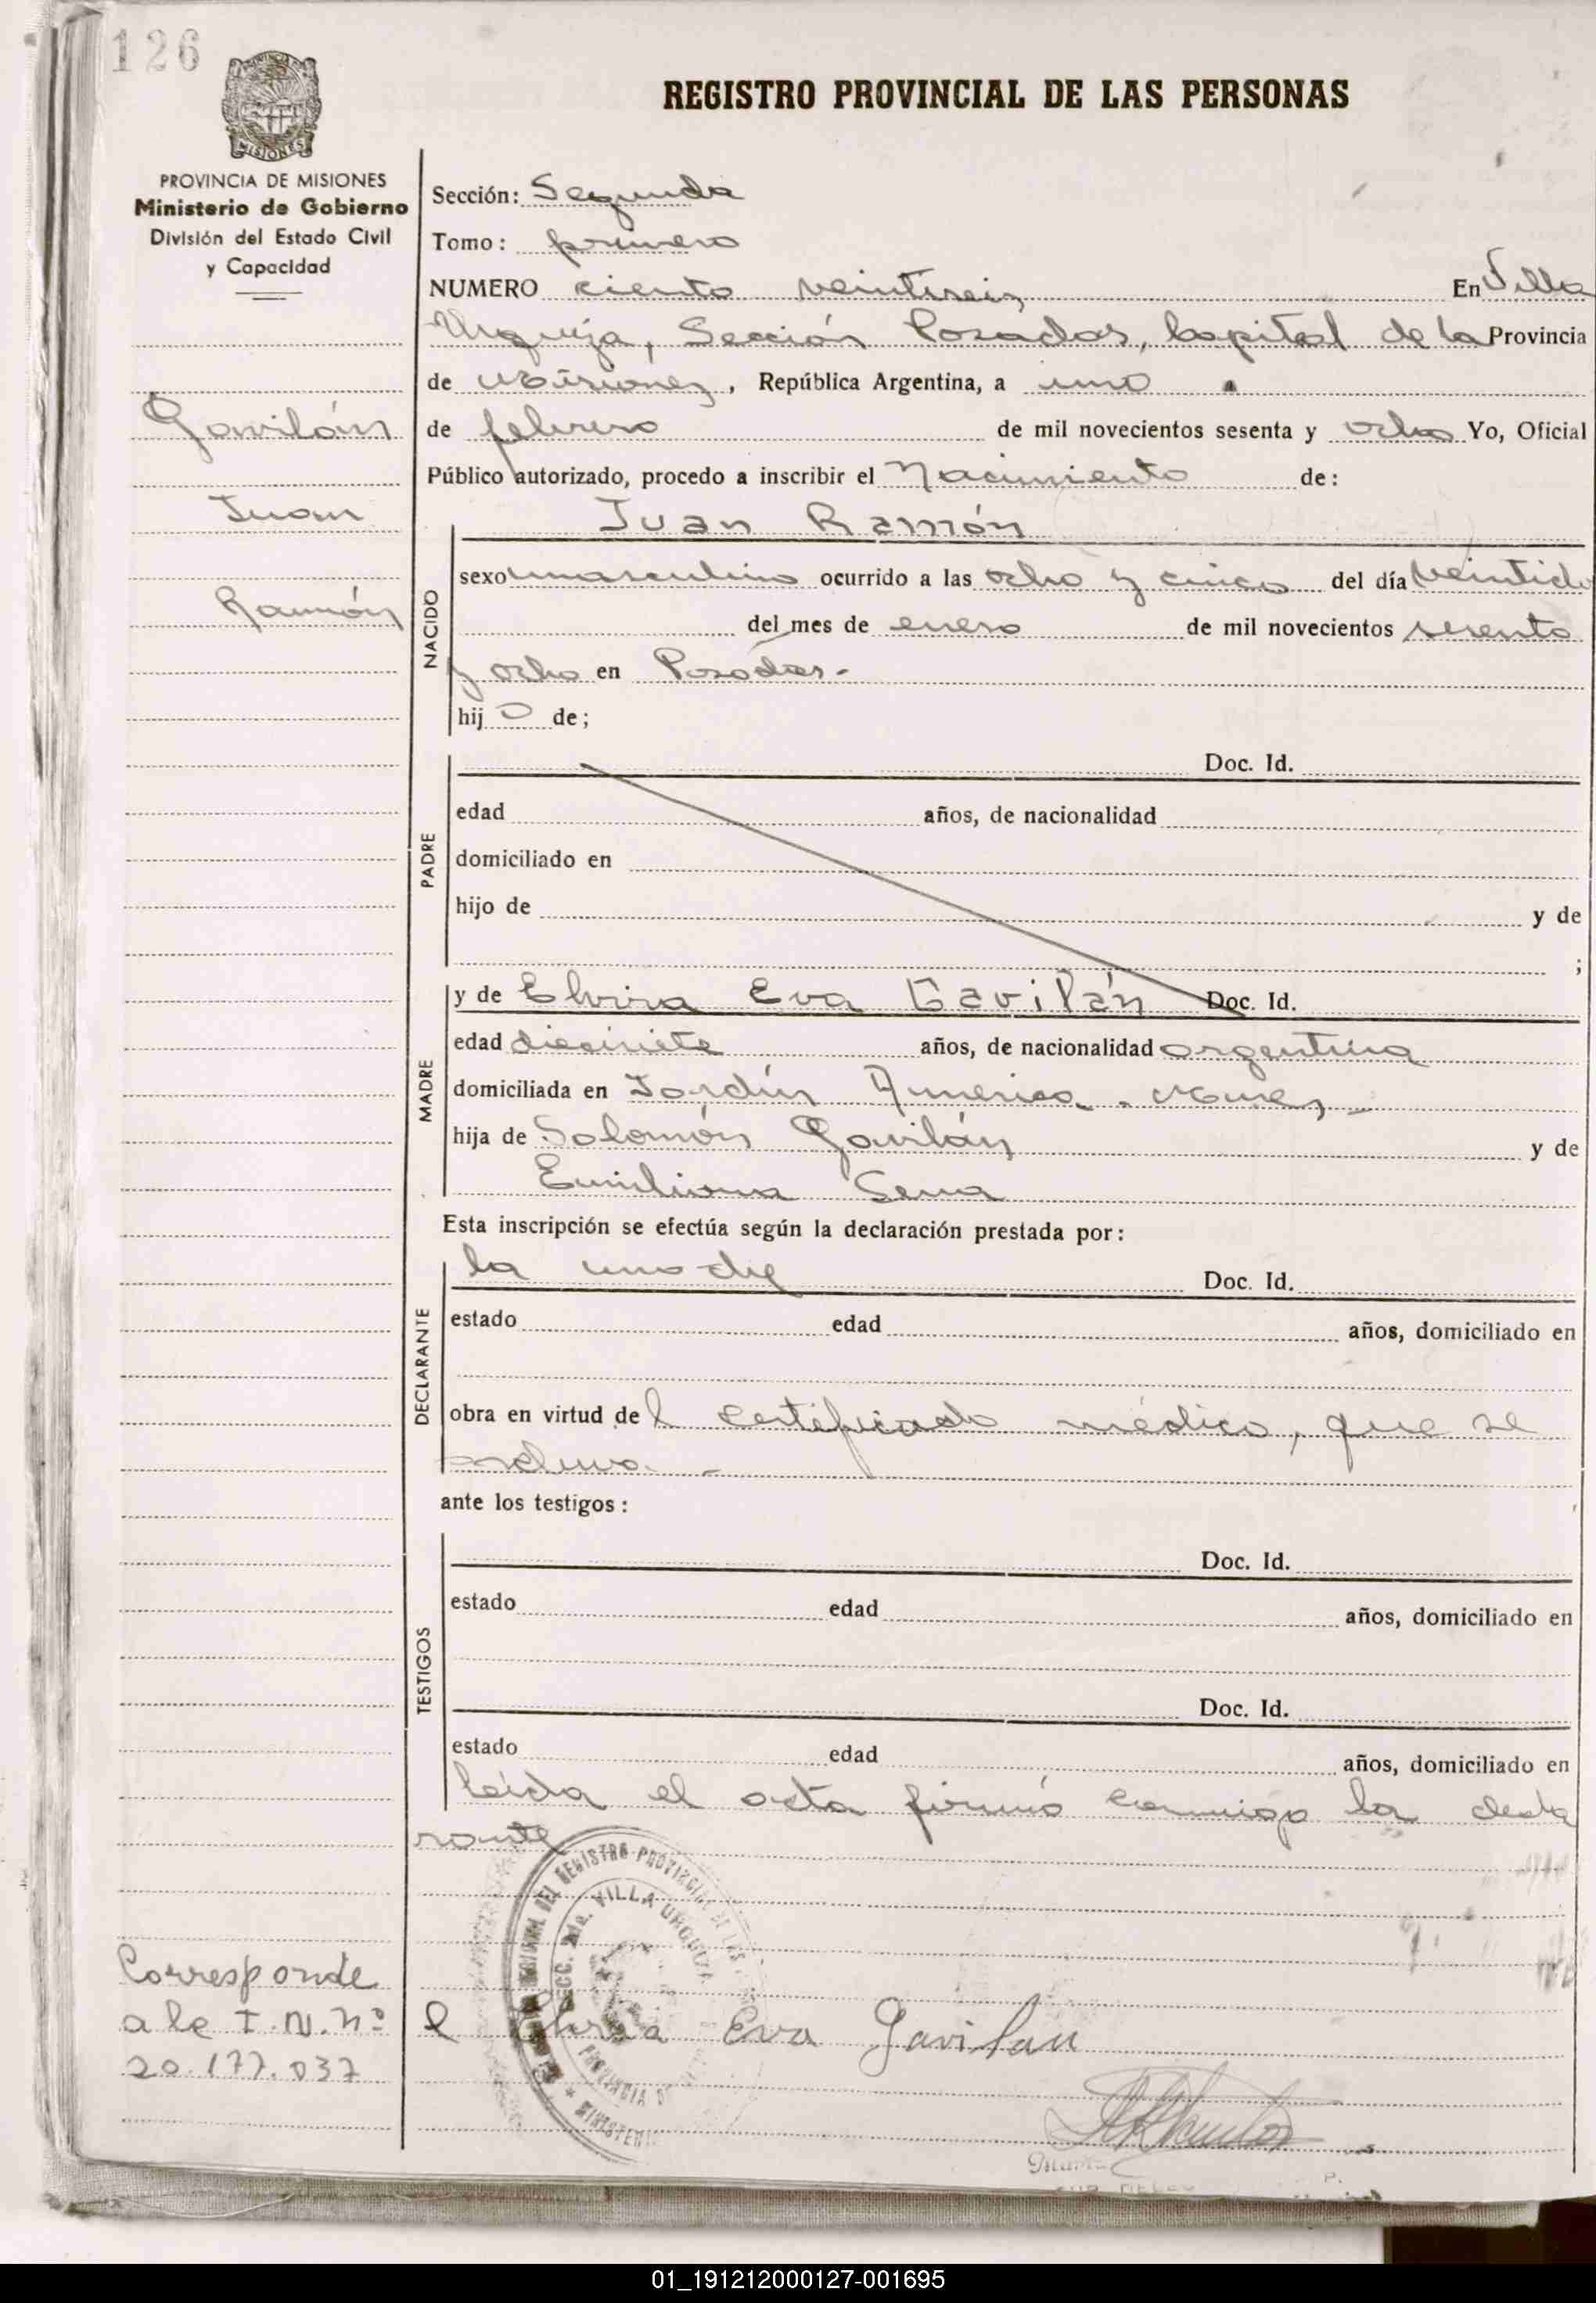 126
REGISTRO PROVINCIAL DE LAS PERSONAS
MISIONES
PROVINCIA DE MISIONES
Ministerio de Gobierno
División del Estado Civil
y Capacidad
Sección: Segunda
Tomo: primero
NUMERO ciento veintiseis En Villa
Urquiza, Sección Posadas, Capital de la Provincia
de Misiones, República Argentina, a uno
Gavilán
de febrero de mil novecientos sesenta y ocho Yo, Oficial
Público autorizado, procedo a inscribir el Nacimiento de:
Juan
Juan Ramón
NACIDO
sexo masculino ocurrido a las ocho y cinco del día
Ramón
del mes de enero de mil novecientos sesenta
y ocho en Posadas.-
hij o de;
PADRE
Doc. Id.
edad años, de nacionalidad
domiciliado en
hijo de y de
;
MADRE
y de Elvira Eva Gavilán Doc. Id.
edad diecisiete años, de nacionalidad argentina
domiciliada en Jardín America
hija de Solomón Gavilán y de
Emiliana Sena
Esta inscripción se efectúa según la declaración prestada por:
DECLARANTE
la madre Doc. Id.
estado edad años, domiciliado en
obra en virtud del certificado médico, que se
archiva.-
ante los testigos:
TESTIGOS
Doc. Id.
estado edad años, domiciliado en
Doc. Id.
estado edad años, domiciliado en
leída el acta firmó conmigo la decla
rante
REGISTRO PROVINCIAL DE LAS
SECC. 2da. VILLA URQUIZA
PROVINCIA
MINISTERIO
Corresponde
a le I.N.Nº
20.177.037
Elvira Eva Gavilan
01_191212000127-001695